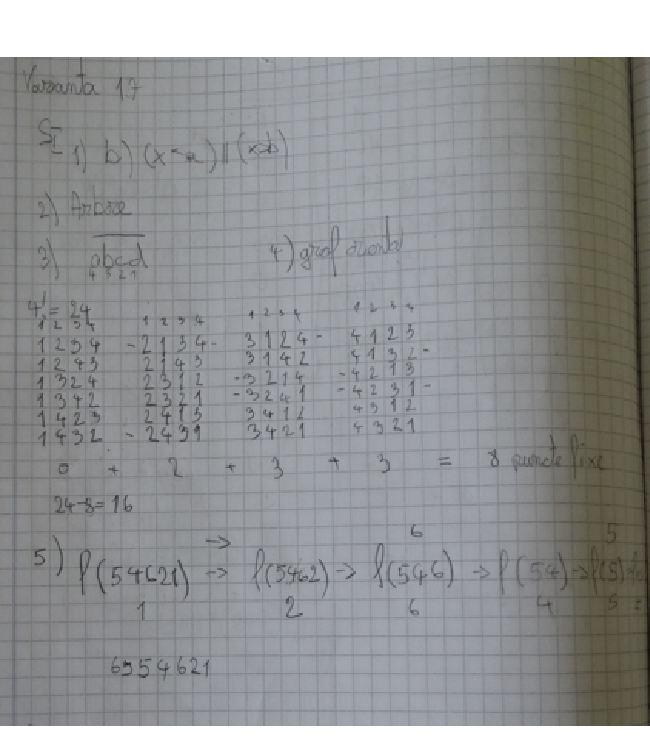 Varianta 17
SI 1) b) (x<a)||(x>b)
2) Arbore
3) abcd 4) graf orientat
4 3 2 1
4! = 24
1 2 3 4 1 2 3 4 1 2 3 4 1 2 3 4
1 2 3 4 - 2 1 3 4 - 3 1 2 4 - 4 1 2 3
1 2 4 3 2 1 4 3 3 1 4 2 4 1 3 2 -
1 3 2 4 2 3 1 2 - 3 2 1 4 - 4 2 1 3
1 3 4 2 2 3 2 1 - 3 2 4 1 - 4 2 3 1 -
1 4 2 3 2 4 1 3 3 4 1 2 4 3 1 2
1 4 3 2 - 2 4 3 1 3 4 2 1 4 3 2 1
0 + 2 + 3 + 3 = 8 puncte fixe
24-8=16
6 5
5) f(54621) → f(5462) → f(546) → f(54) → f(5)
1 2 6 4 5
6554621